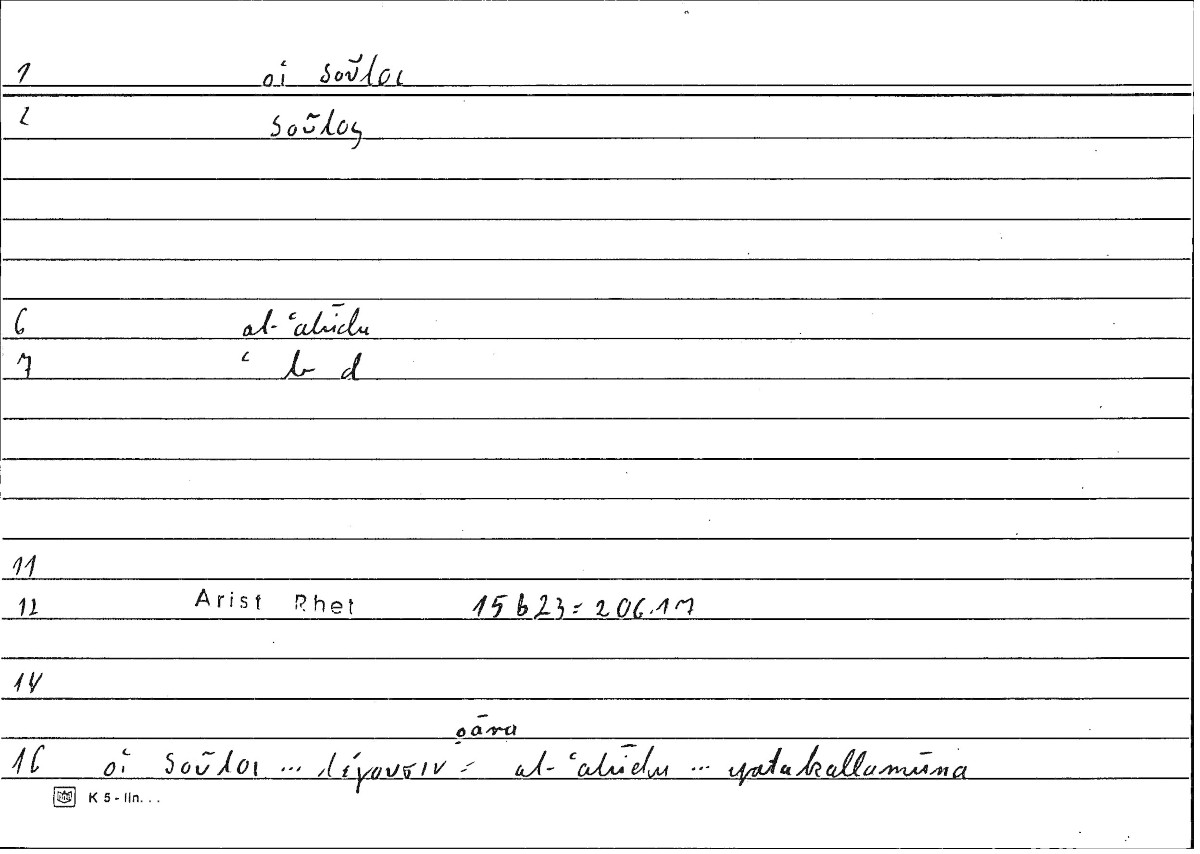 1 οἱ δοῦλοι
2 δοῦλος
6 al-ʿabīdu
7 ʿ b d
11
12 Arist Rhet 15b23=206.17
14
ṣāra
16 οἱ δοῦλοι ... λέγουσιν = al-ʿabīdu ... yatakallamūna
K 5 - lln. . .